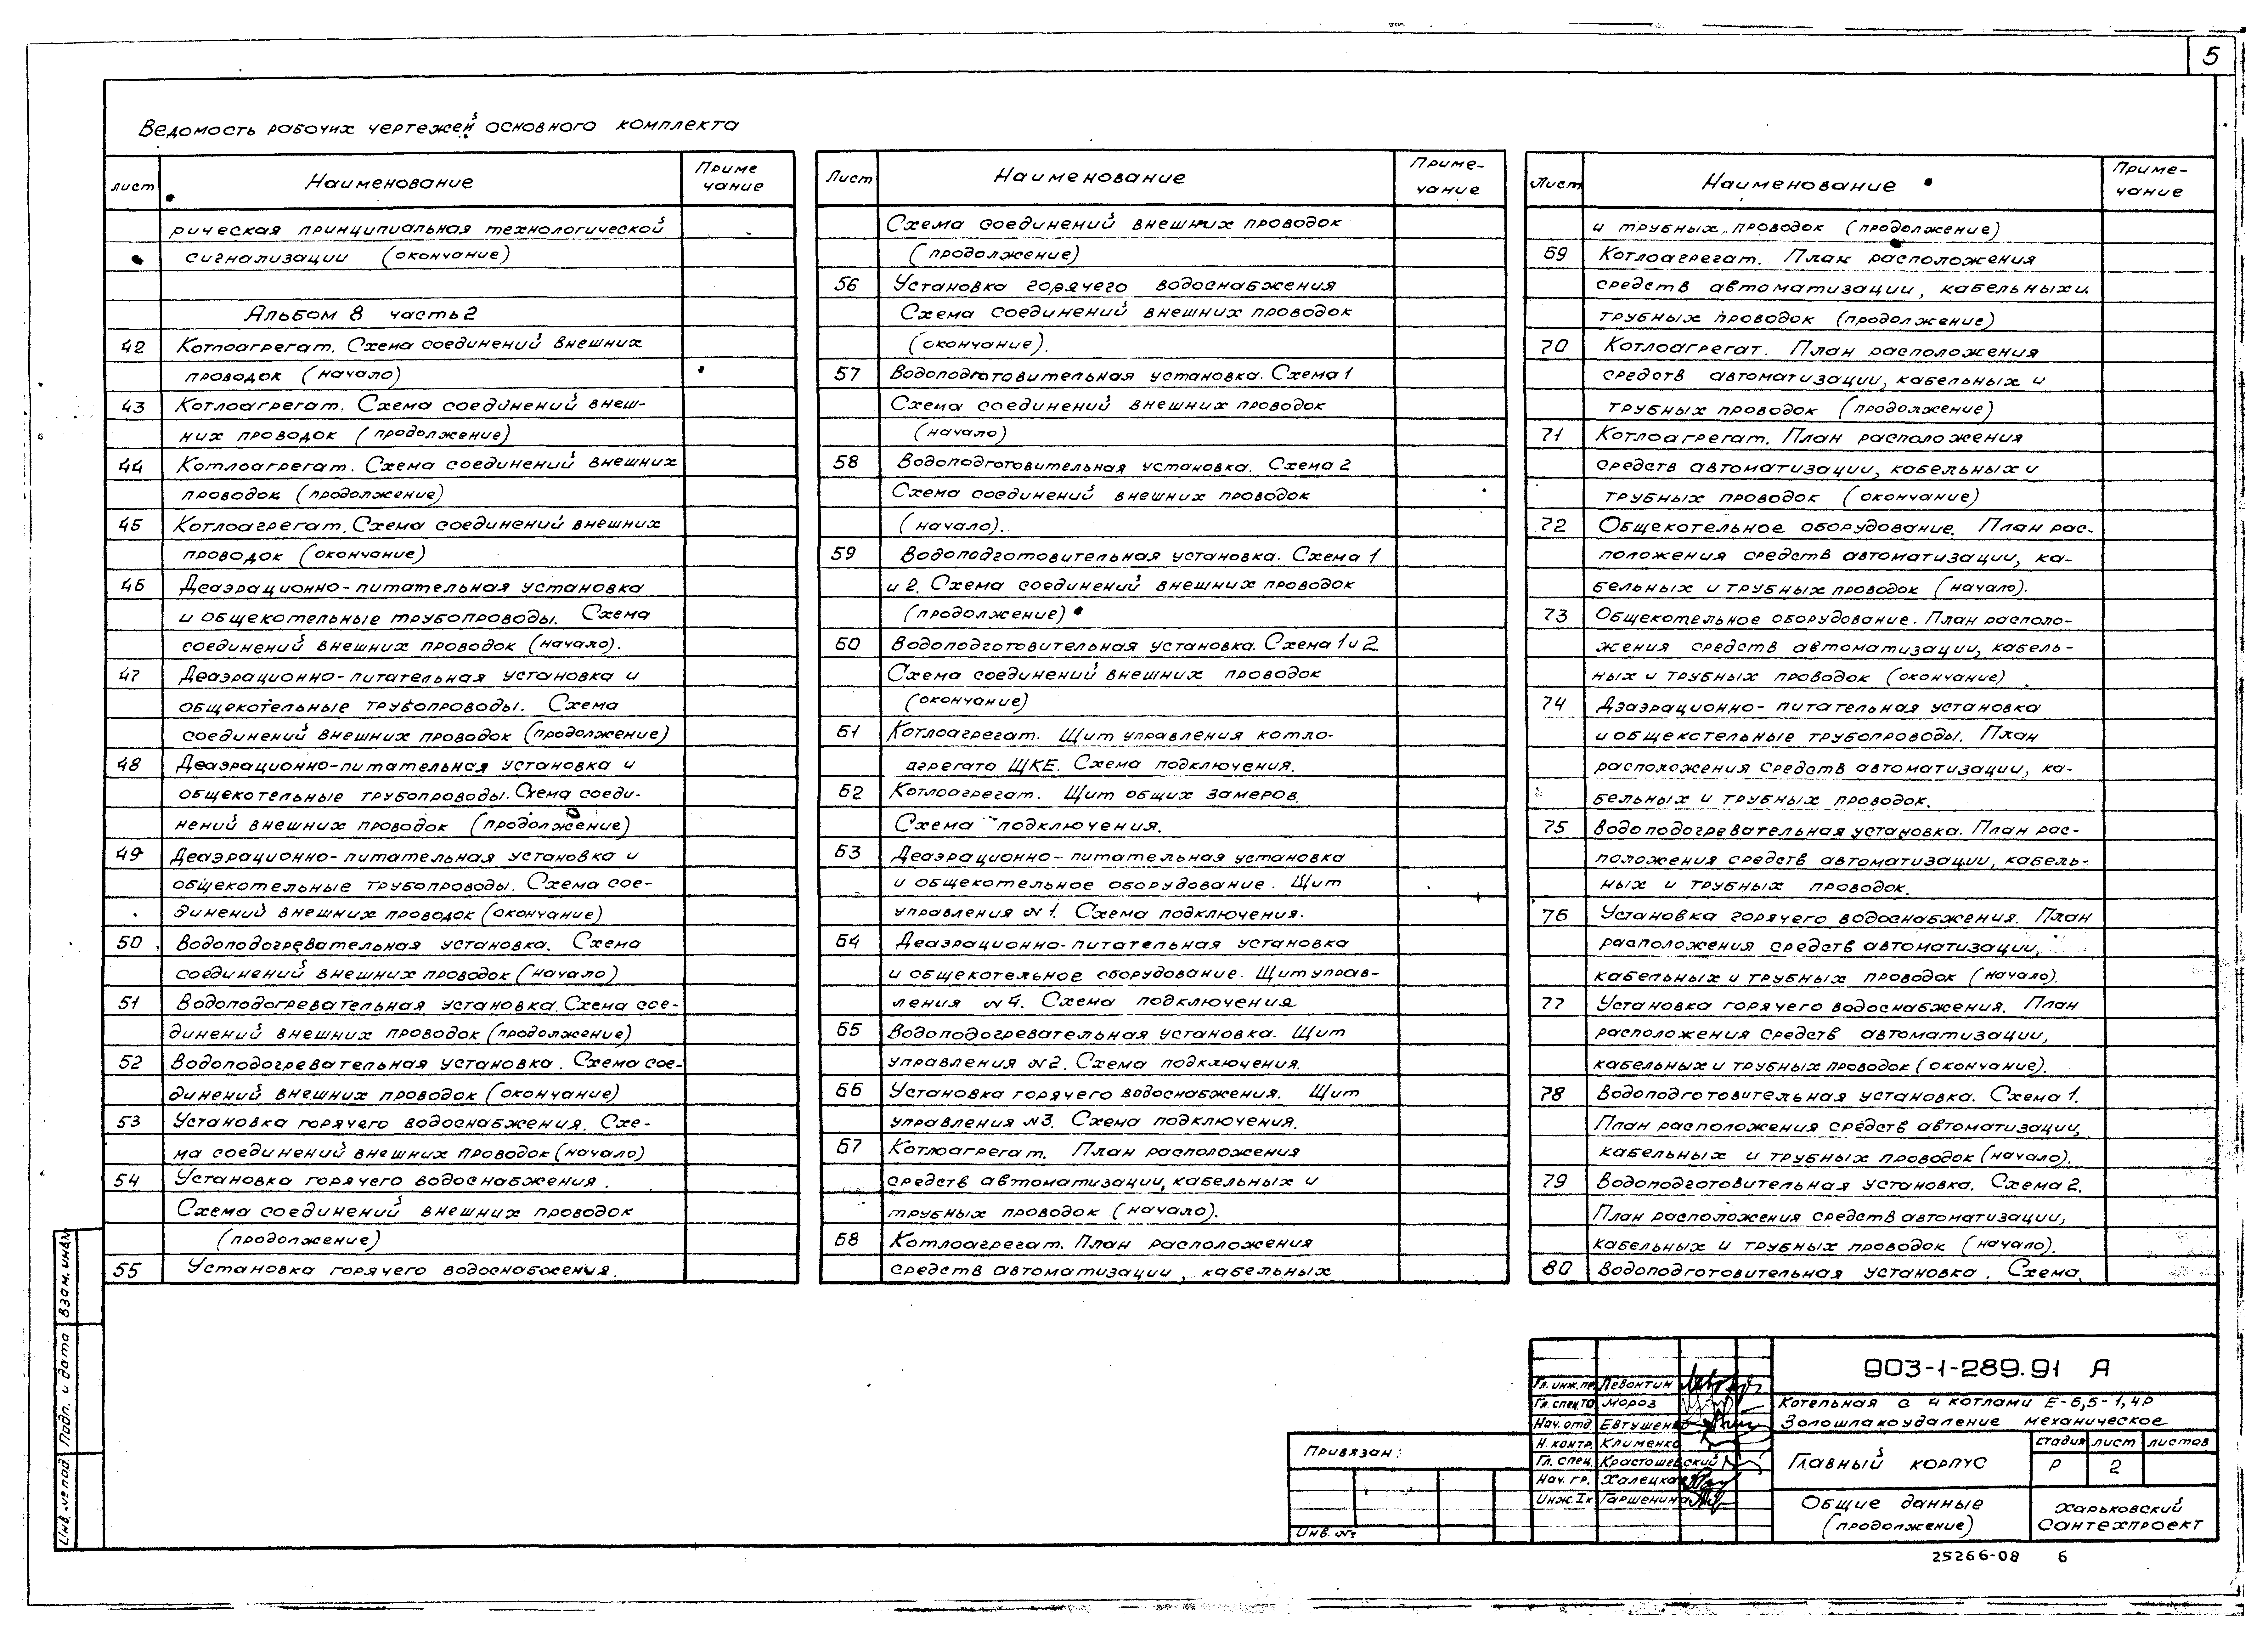 5
Ведомость рабочих чертежей основного комплекта
лист Наименование Приме
чание
рическая принципиальная технологической
сигнализации (окончание)
Альбом 8 часть 2
42 Котлоагрегат. Схема соединений внешних
проводок (начало)
43 Котлоагрегат. Схема соединений внеш-
них проводок (продолжение)
44 Котлоагрегат. Схема соединений внешних
проводок (продолжение)
45 Котлоагрегат. Схема соединений внешних
проводок (окончание)
46 Деаэрационно-питательная установка
и общекотельные трубопроводы. Схема
соединений внешних проводок (начало).
47 Деаэрационно-питательная установка и
общекотельные трубопроводы. Схема
соединений внешних проводок (продолжение)
48 Деаэрационно-питательная установка и
общекотельные трубопроводы. Схема соеди-
нений внешних проводок (продолжение)
49 Деаэрационно-питательная установка и
общекотельные трубопроводы. Схема сое-
динений внешних проводок (окончание)
50 Водоподогревательная установка. Схема
соединений внешних проводок (начало)
51 Водоподогревательная установка. Схема сое-
динений внешних проводок (продолжение)
52 Водоподогревательная установка. Схема сое-
динений внешних проводок (окончание)
53 Установка горячего водоснабжения. Схе-
ма соединений внешних проводок (начало)
54 Установка горячего водоснабжения.
Схема соединений внешних проводок
(продолжение)
55 Установка горячего водоснабжения.
Лист Наименование Приме-
чание
Схема соединений внешних проводок
(продолжение)
56 Установка горячего водоснабжения
Схема соединений внешних проводок
(окончание).
57 Водоподготовительная установка. Схема 1
Схема соединений внешних проводок
(начало)
58 Водоподготовительная установка. Схема 2
Схема соединений внешних проводок
(начало).
59 Водоподготовительная установка. Схема 1
и 2. Схема соединений внешних проводок
(продолжение)
60 Водоподготовительная установка. Схема 1 и 2.
Схема соединений внешних проводок
(окончание)
61 Котлоагрегат. Щит управления котло-
агрегата ЩКЕ. Схема подключения.
62 Котлоагрегат. Щит общих замеров.
Схема подключения.
63 Деаэрационно-питательная установка
и общекотельное оборудование. Щит
управления №1. Схема подключения.
64 Деаэрационно-питательная установка
и общекотельное оборудование. Щит управ-
ления №4. Схема подключения
65 Водоподогревательная установка. Щит
управления №2. Схема подключения.
66 Установка горячего водоснабжения. Щит
управления №3. Схема подключения.
67 Котлоагрегат. План расположения
средств автоматизации, кабельных и
трубных проводок (начало).
68 Котлоагрегат. План расположения
средств автоматизации, кабельных
Лист Наименование Приме-
чание
и трубных проводок (продолжение)
69 Котлоагрегат. План расположения
средств автоматизации, кабельных и
трубных проводок (продолжение)
70 Котлоагрегат. План расположения
средств автоматизации, кабельных и
трубных проводок (продолжение)
71 Котлоагрегат. План расположения
средств автоматизации, кабельных и
трубных проводок (окончание)
72 Общекотельное оборудование. План рас-
положения средств автоматизации, ка-
бельных и трубных проводок (начало).
73 Общекотельное оборудование. План располо-
жения средств автоматизации, кабель-
ных и трубных проводок (окончание).
74 Дэаэрационно-питательная установка
и общекотельные трубопроводы. План
расположения средств автоматизации, ка-
бельных и трубных проводок.
75 Водоподогревательная установка. План рас-
положения средств автоматизации, кабель-
ных и трубных проводок.
76 Установка горячего водоснабжения. План
расположения средств автоматизации,
кабельных и трубных проводок (начало).
77 Установка горячего водоснабжения. План
расположения средств автоматизации,
кабельных и трубных проводок (окончание).
78 Водоподготовительная установка. Схема 1.
План расположения средств автоматизации,
кабельных и трубных проводок (начало).
79 Водоподготовительная установка. Схема 2.
План расположения средств автоматизации,
кабельных и трубных проводок (начало).
80 Водоподготовительная установка. Схема
Взам. инв.№
Подп. и дата
Инв. № под.
Привязан:
Инв. №
Гл. инж. пр. Левонтин
Гл. спец. ТО Мороз
Нач. отд. Евтушенко
Н. контр. Клименко
Гл. спец. Крастошевский
Нач. гр. Халецкая
Инж. Iк Гаршенина
903-1-289.91 А
Котельная с 4 котлами Е-6,5-1,4Р
Золошлакоудаление механическое
Главный корпус
стадия лист листов
Р 2
Общие данные
(продолжение)
Харьковский
Сантехпроект
25266-08 6